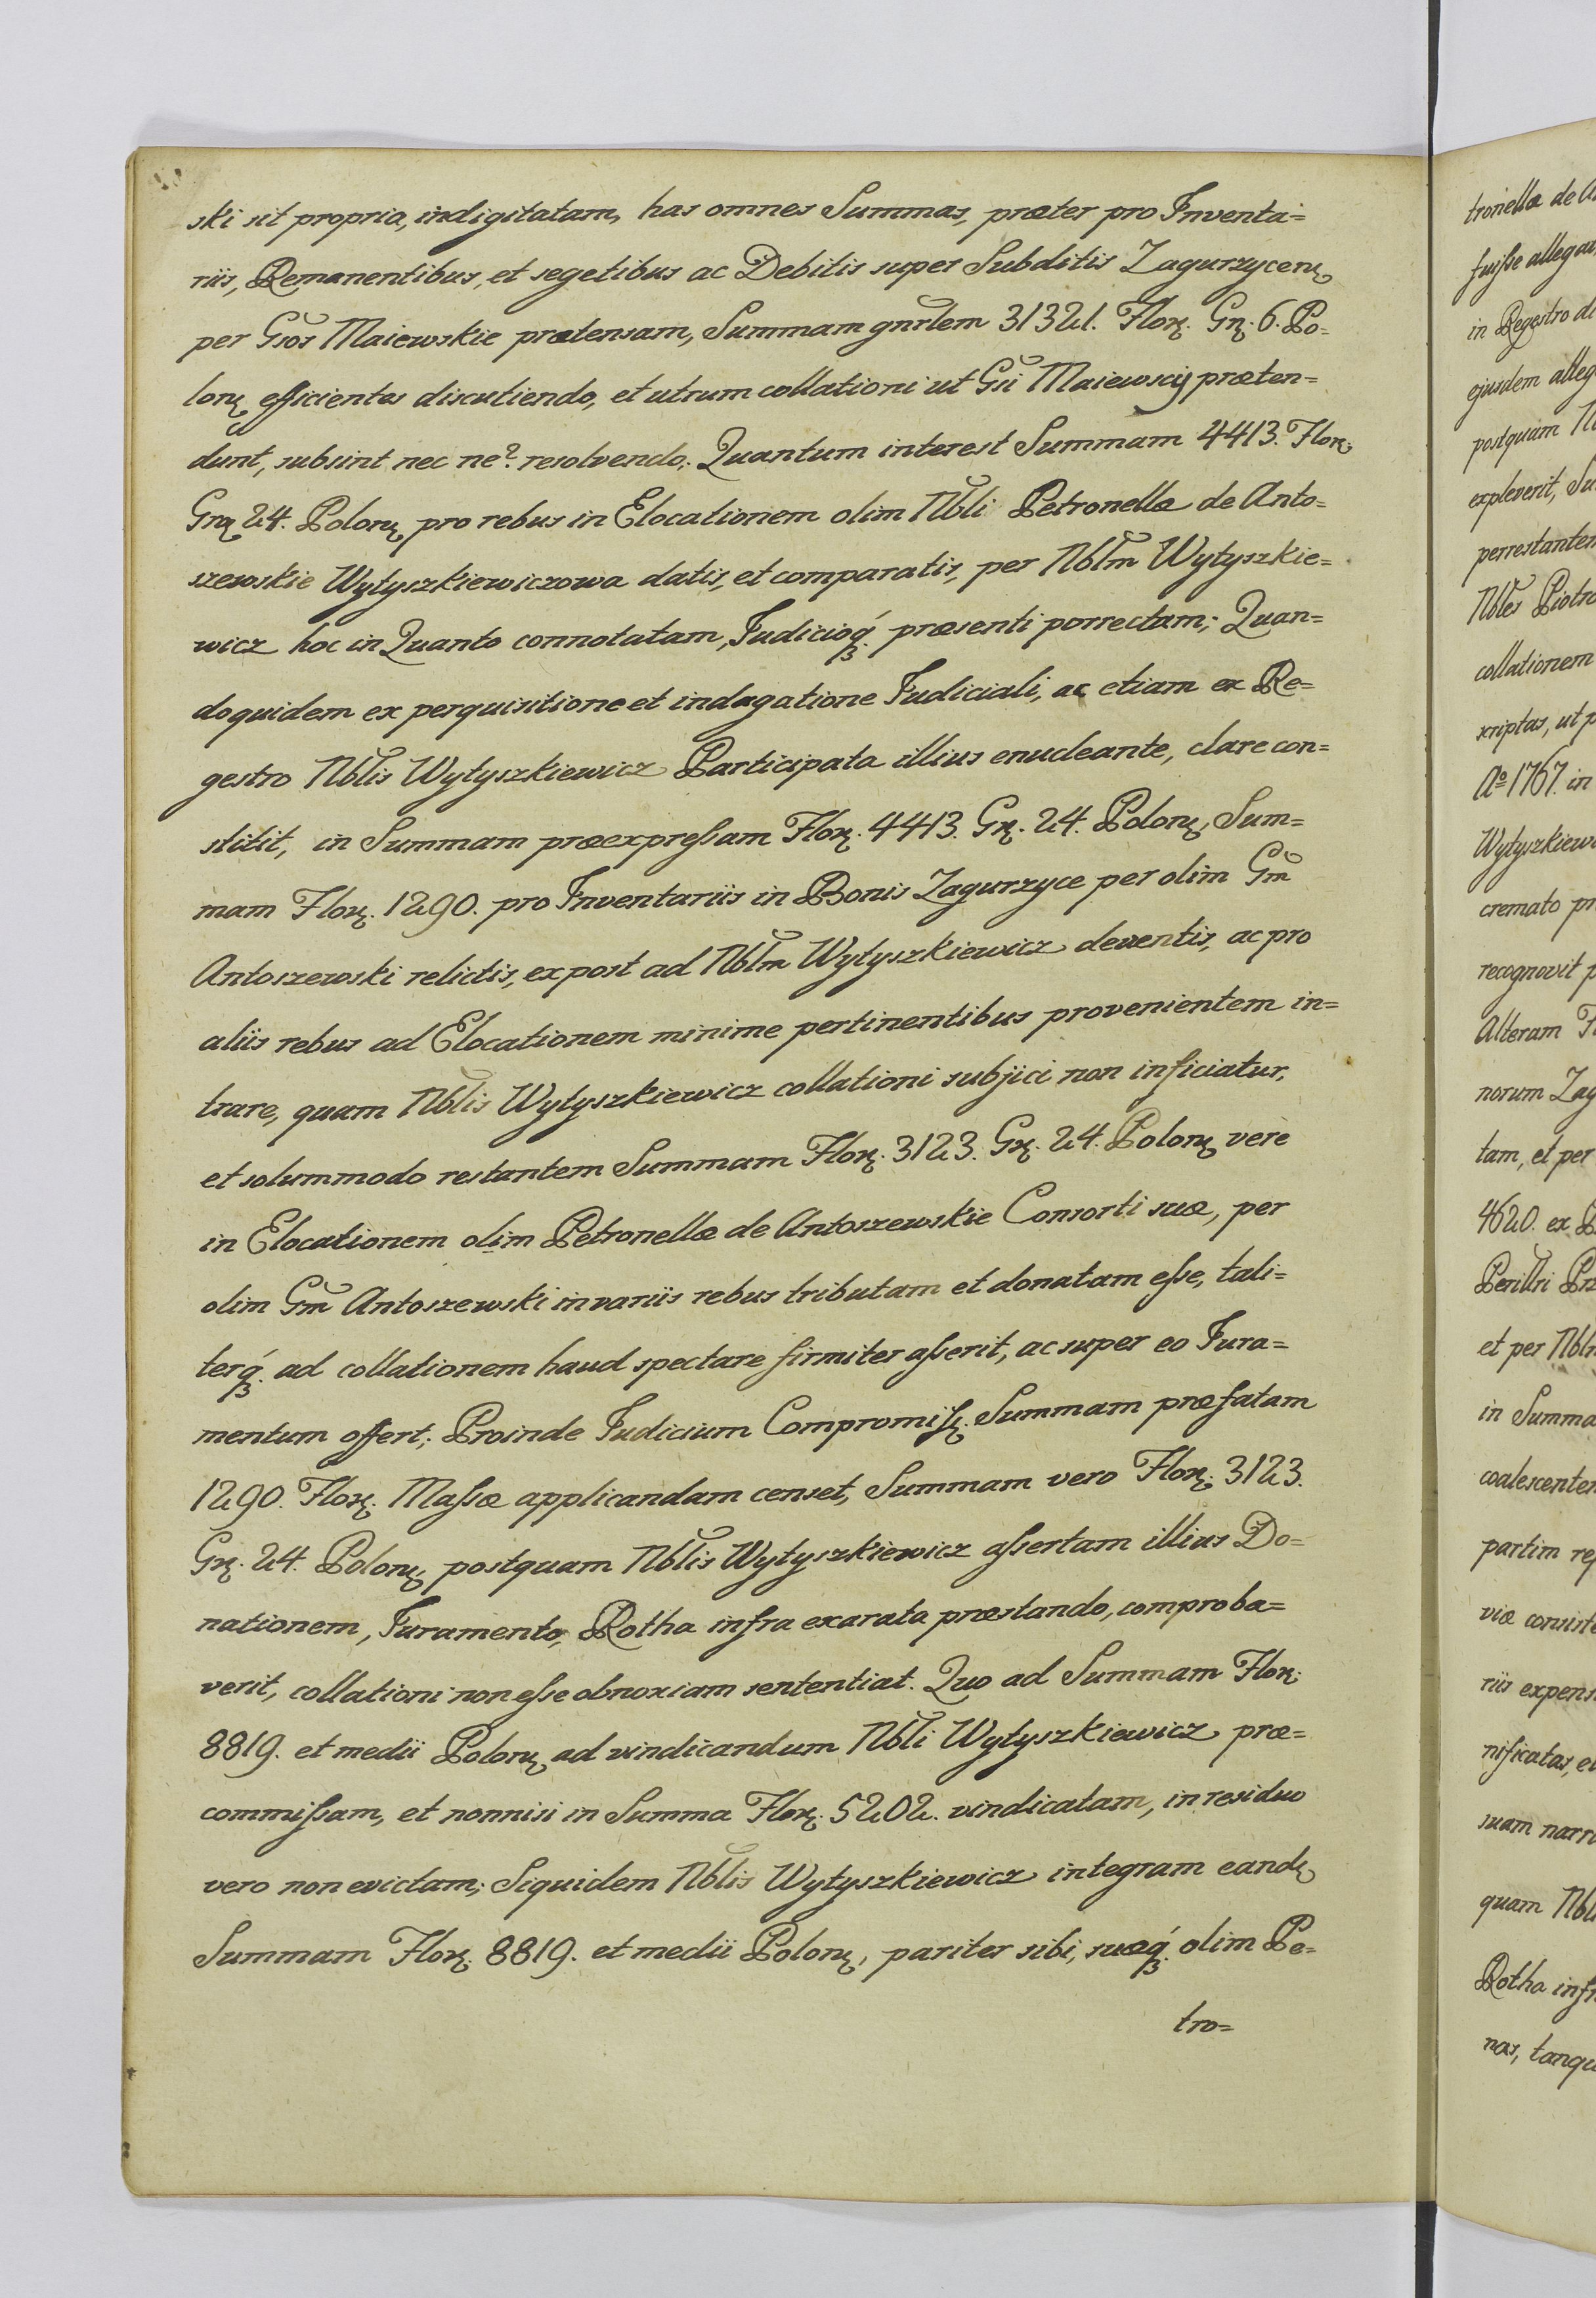 ski sit propria, indigitatam, has omnes Summas, præter pro Inventa=
riis, Remanentibus, et segetibus ac Debitis super Subditis Zagurzycen
per Gsos Maiewskie prætensam, Summam gnrlem 31321. Flor. Gr. 6. Po=
lon efficientes discutiendo, et utrum collationi ut Gsi Maiewscy præten=
dunt, subsint nec ne? resolvendo. Quantum interest Summam 4413. Flor.
Gr 24. Polon, pro rebus in Elocationem olim Nbli Petronellæ de Anto=
szewskie Wytyszkiewiczowa datis, et comparatis, per Nblm Wytyszkie=
wicz hoc in Quanto connotatam, Iudicioq́ præsenti porrectam; Quan=
doquidem ex perquisitione et indagatione Iudiciali, ac etiam ex Re=
gestro Nblis Wytyszkiewicz Participata illius enucleante, clare con=
stitit, in Summam præexpreſsam Flor. 4413. Gr. 24. Polon, Sum=
mam Flor. 1290. pro Inventariis in Bonis Zagurzyce per olim Gm
Antoszewski relictis, ex post ad Nblm Wytyszkiewicz deventis, ac pro
aliis rebus ad Elocationem minime pertinentibus provenientem in=
trare, quam Nblis Wytyszkiewicz collationi subjici non inficiatur,
et solummodo restantem Summam Flor. 3123. Gr. 24. Polon, vere
in Elocationem olim Petronellæ de Antoszewskie Consorti suæ, per
olim Gm Antoszewski in variis rebus tributam et donatam eſse, tali=
terq́. ad collationem haud spectare firmiter aſserit, ac super eo Iura=
mentum offert; Proinde Iudicium Compromiſs. Summam præfatam
1290. Flor. Maſsæ applicandam censet, Summam vero Flor. 3123.
Gr. 24. Polon, postquam Nblis Wytyszkiewicz aſsertam illius Do=
nationem, Iuramento, Rotha infra exarata præstando, comproba=
verit, collationi non eſse obnoxiam sententiat. Quo ad Summam Flor.
8819. et medii Polon, ad vindicandum Nbli Wytyszkiewicz præ=
commiſsam, et nonnisi in Summa Flor. 5202. vindicatam, in residuo
vero non evictam; Siquidem Nblis Wytyszkiewicz integram eand
Summam Flor. 8819. et medii Polon, pariter sibi, suæq́. olim Pe=
tro=
tronellæ de
fuiſse
in Regestro
ejusdem
postquam
expleverit,
Nbles
collationem
scriptas, ut
Aº 1767. in
cremato
recognovit
Alteram
norum
tam, et per
4620. ex
Perillri
et per
in
partim
viæ
riis
nificatas,
suam
quam
Rotha
nas,